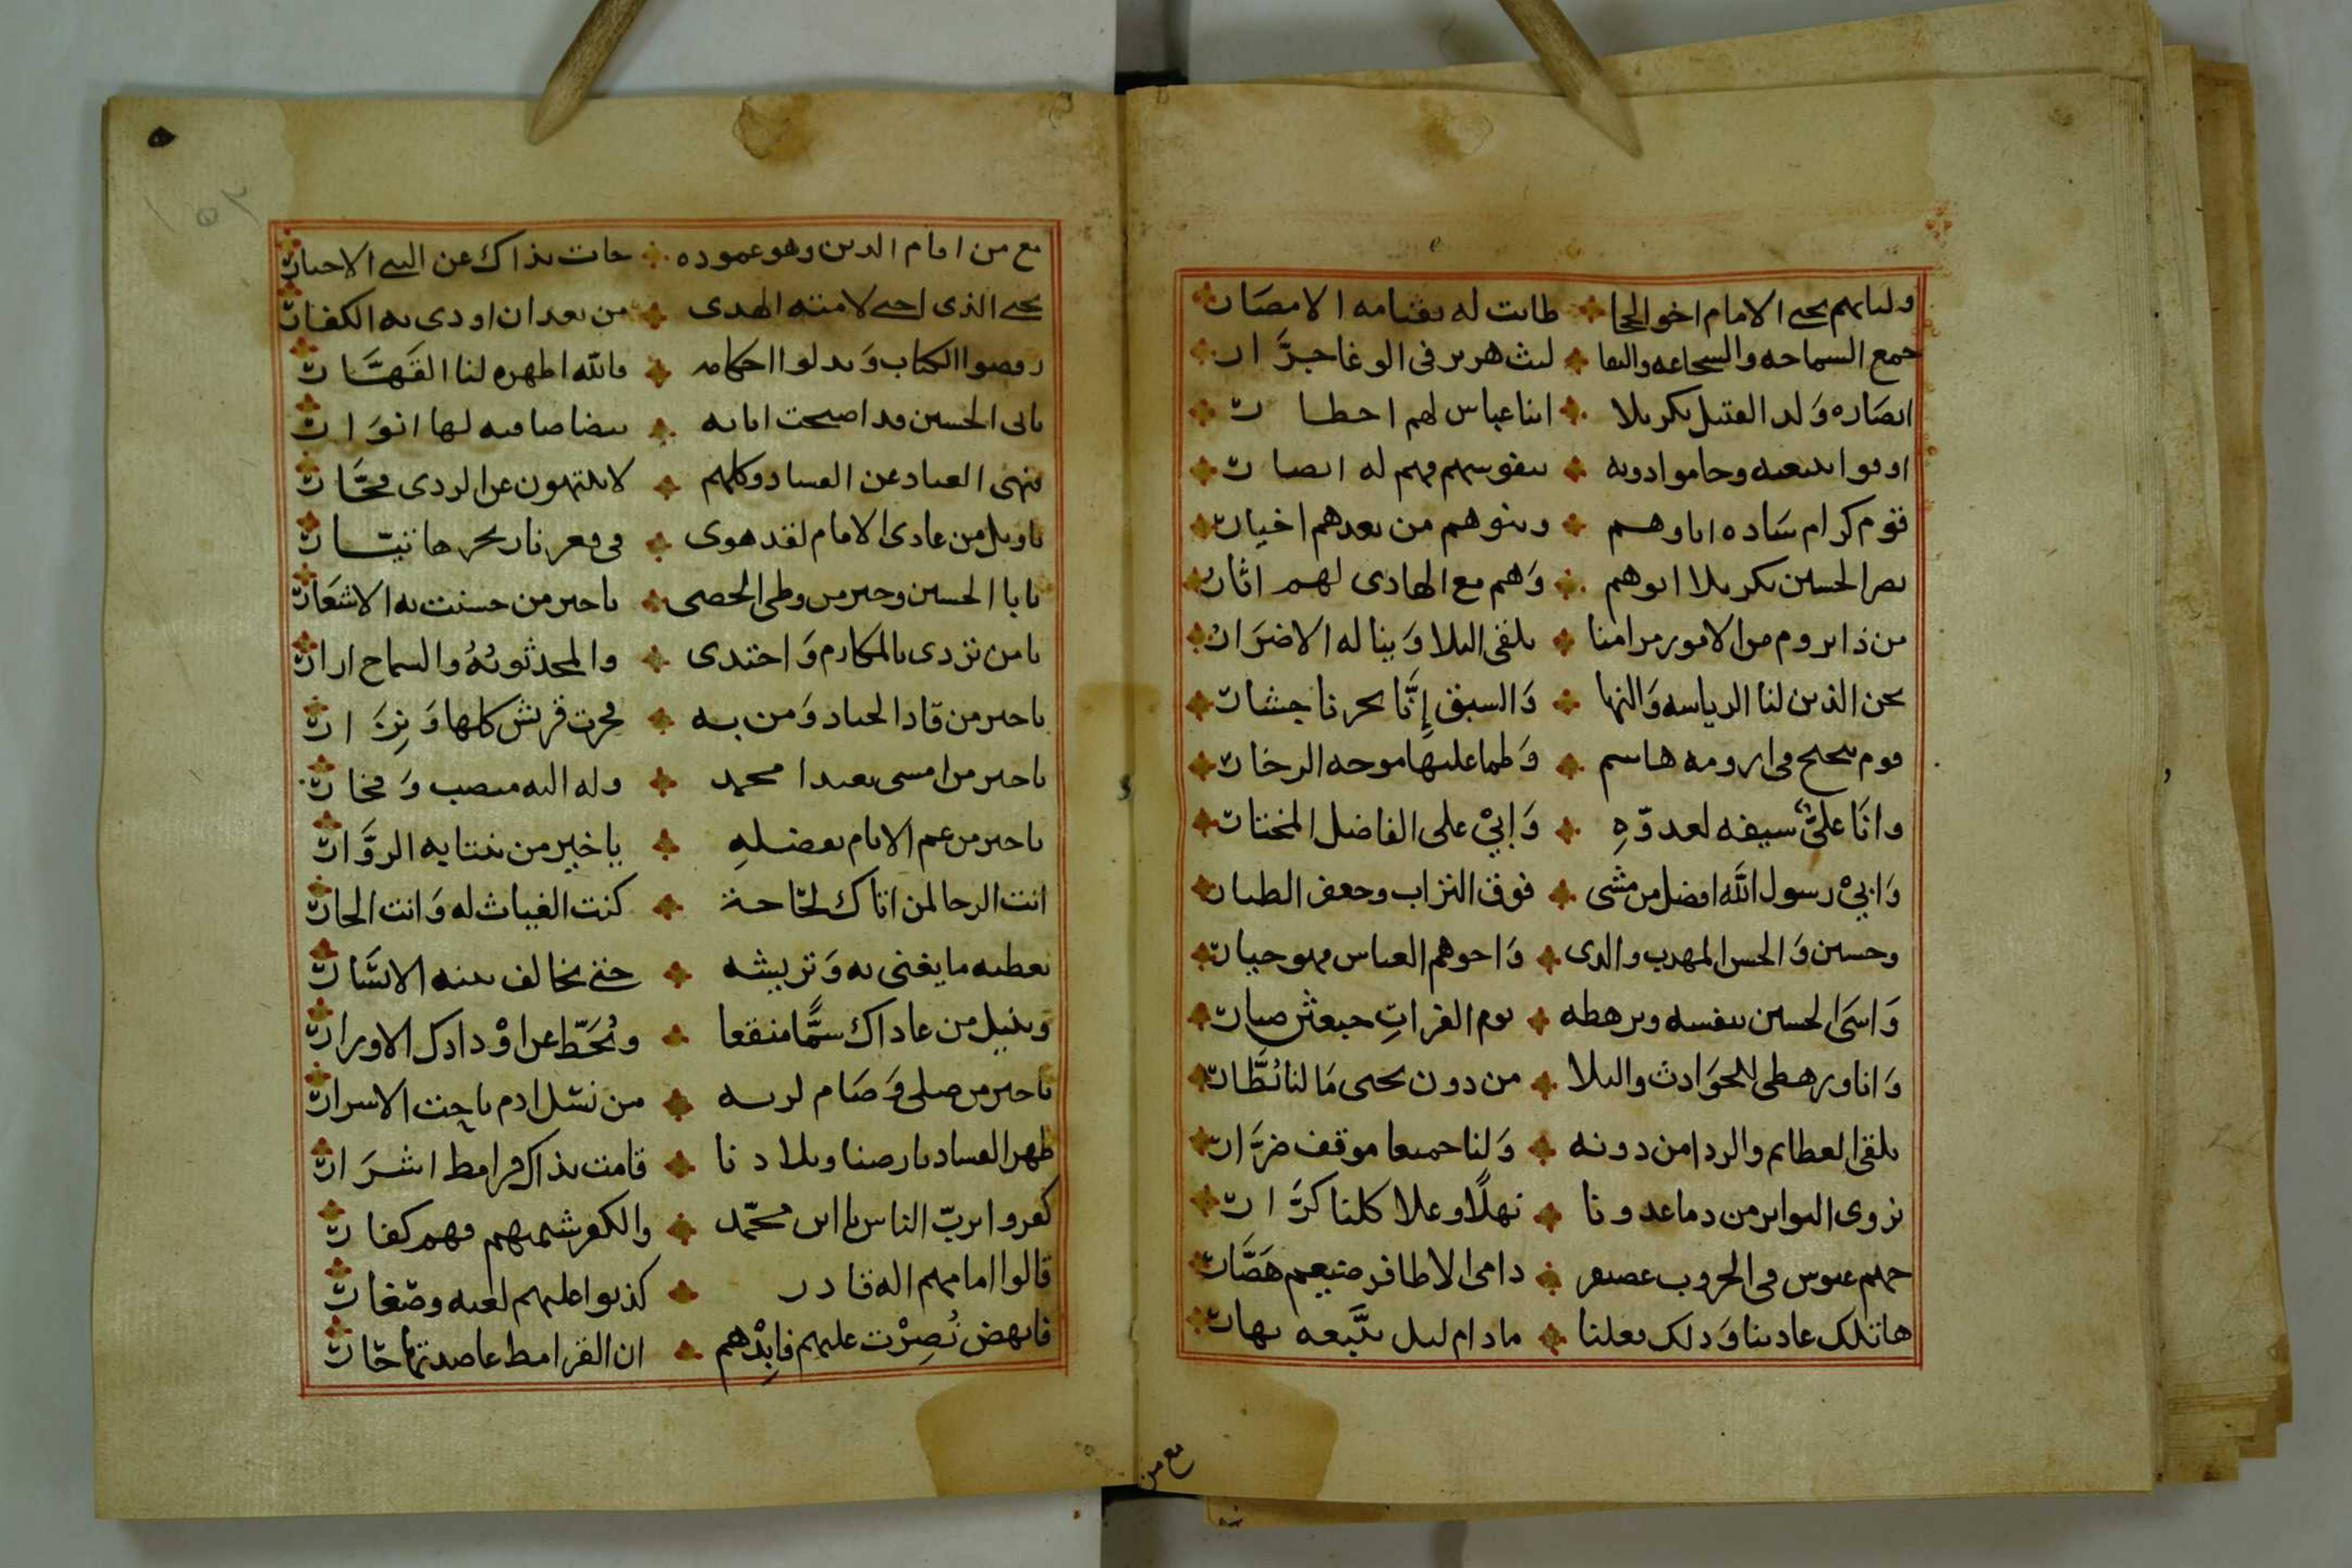 ولباسهم يحيى الامام اخو الحجا ❖ طابت له بقيامه الامصار
جمع السماحه والشجاعه والبقا ❖ ليث هزبر فى الوغا جرَّار
انصاره وَلد القتيل بكربلا ❖ ابنا عباس لهم اخطار
اوفوا ببيعته وحاموا دونه ❖ بنفوسهم فهم له انصار
قوم كرام سَاده اباوهم ❖ وبنوهم من بعدهم اخيار
نصر الحسين بكربلا ابوهم ❖ وَهم مع الهادى لهم اثار
من ذا يروم من الامور مرامنا ❖ يلقى البلا وَيناله الاضرَار
نحن الذين لنا الرياسه وَالنها ❖ وَالسبق إنَّا بحرنا جيشار
قوم تبحبح فى ارومه هاشم ❖ وَطما عليها موجه الزخار
وانا علىّ سيفه لعدوّهِ ❖ وَابيْ على الفاضل المختار
وَابيْ رسول الله افضل من مشى ❖ فوق التراب وجعفر الطيار
وحسين وَالحسن المهذب والدى ❖ وَاخوهم العباس فهو خيار
وَاسَى الحسين بنفسه وبرهطه ❖ يوم الفراتِ خبعثن صبار
وَانا ورهطى للحوَادث والبلا ❖ من دون يحيى مَا لنا نُظَّار
يلقى العظايم والردا من دونه ❖ وَلنا جميعا موقف ضرَّار
نروى البواتر من دما عدونا ❖ نهلًا وعلا كلنا كرَّار
جهم عبوس فى الحروب غضنفر ❖ دامى الاظافر ضيغم هَصَّار
هاتلك عادتنا وَذلك فعلنا ❖ مادام ليل يتَّبعه نهار
مع من
مع من امام الدين وهو عموده ❖ جات بذاك عن النبى الاخبار
يحيى الذى احيى لامته الهدى ❖ من بعد ان اودى به الكفار
رفضوا الكتاب وَبدلوا احكامه ❖ فالله اظهره لنا القَهَّار
بابى الحسين قد اصبحت اياته ❖ بيضا صافيه لها انوَار
ينهى العباد عن الفساد وكلهم ❖ لا ينتهون عن الردى فجَّار
ياويل من عادى الامام لقد هوى ❖ فى قعر نار بحرها تيَّار
يابا الحسين وخير من وطى الحصى ❖ ياخير من حسنت به الاشعَار
يامن تردى بالمكارم وَاحتدى ❖ والمجد ثوبُهُ والسماح ازار
ياخير من قاد الجياد وَمن به ❖ فخرت قريش كلها وَنِزَار
ياخير من امسى بعيدا محمد ❖ وله اليه منصب وَفخار
ياخير من عم الانام بفضلهِ ❖ ياخير من تنتابه الزوَّار
انت الرجا لمن اتاك لحَاجة ❖ كنت الغياث له وَانت الجار
تعطيه ما يغنى به وَتريشه ❖ حتى يخالف بيته الايسَار
وينيل من عاداك سمًّا منقعا ❖ ونُحَطّ عن اوْدادك الاوزار
ياخير من صلى وَصَام لربه ❖ من نسْل ادم ياجت الاسرار
ظهر الفساد بارضنا وبلادنا ❖ قامت بذاك قرامط اشرَار
كفروا بربّ الناس يا ابن محمّد ❖ والكفر شيمتهم فهم كفار
قالوا امامهم اله قادر ❖ كذبوا عليهم لعنه وصَغار
فانهض نُصِرْت عليهم فابِدْهم ❖ ان القرامط عاضدتها حَار